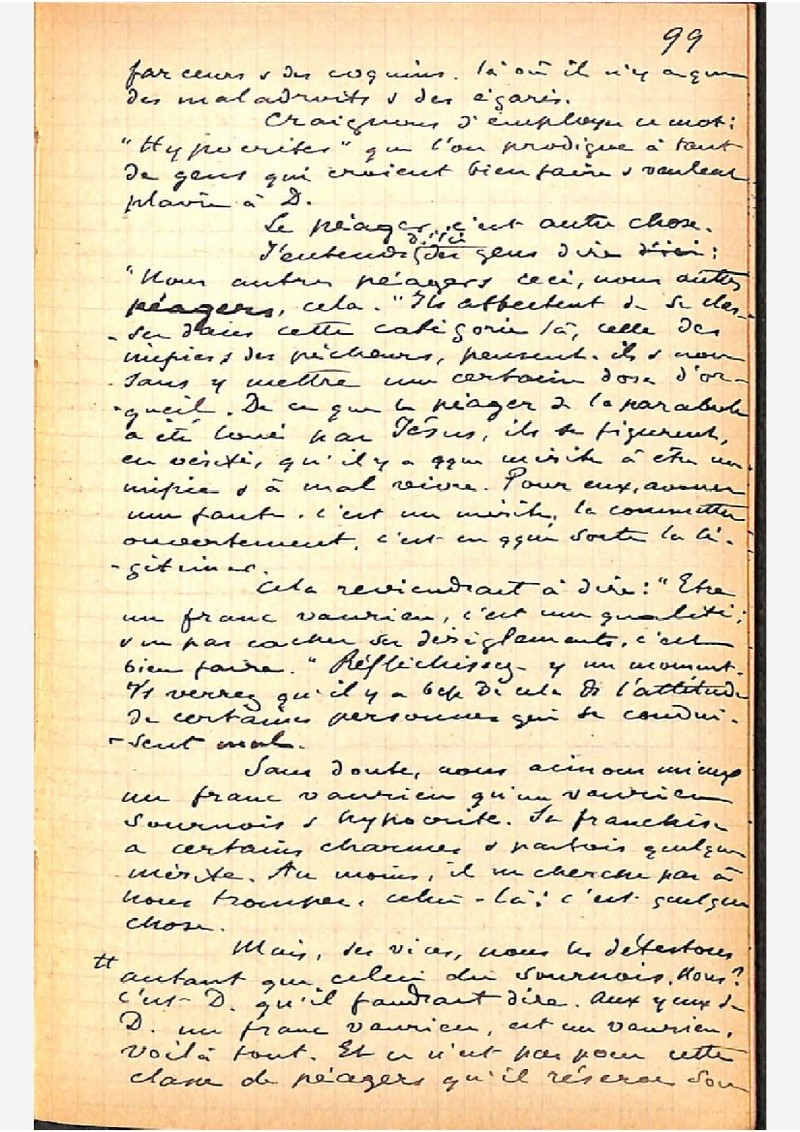 99
farceurs & des coquins. là où il n'y a que
des maladroits & des égarés.
Craignons d'employer ce mot:
"Hypocrites" que l'on prodigue à tant
de gens qui croient bien faire & veulent
plaire à D.
Le péager, c'est autre chose.
d'ici
J'entends des gens dire d'ici:
"Nous autres péagers ceci, nous autres
péagers, cela." Ils affectent de se clas-
-ser dans cette catégorie là, celle des
impies & des pêcheurs, pensent-ils & non
sans y mettre une certaine dose d'or-
-gueil. De ce que le péager de la parabole
a été loué par Jésus, ils se figurent,
en vérité, qu'il y a qque mérite à être un
impie & à mal vivre. Pour eux, avouer
une faute, c'est un mérite, la commettre
ouvertement, c'est en qque sorte la lé-
-gitimer.
Cela reviendrait à dire: "Etre
un franc vaurien, c'est une qualité;
& ne pas cacher ses dérèglements, c'est
bien faire." Réfléchissez-y un moment.
Vs verrez qu'il y a bcp de cela ds l'attitude
de certaines personnes qui se condui-
-sent mal.
Sans doute, nous aimons mieux
un franc vaurien qu'un vaurien
sournois & hypocrite. Sa franchise
a certains charmes & parfois quelque
mérite. Au moins, il ne cherche pas à
nous tromper, celui-là; c'est quelque
chose.
Mais, ses vices, nous les détestons
tt autant que celui du sournois. Nous?
c'est D. qu'il faudrait dire. Aux yeux de
D. un franc vaurien, est un vaurien,
voilà tout. Et ce n'est pas pour cette
classe de péagers qu'il réserve son